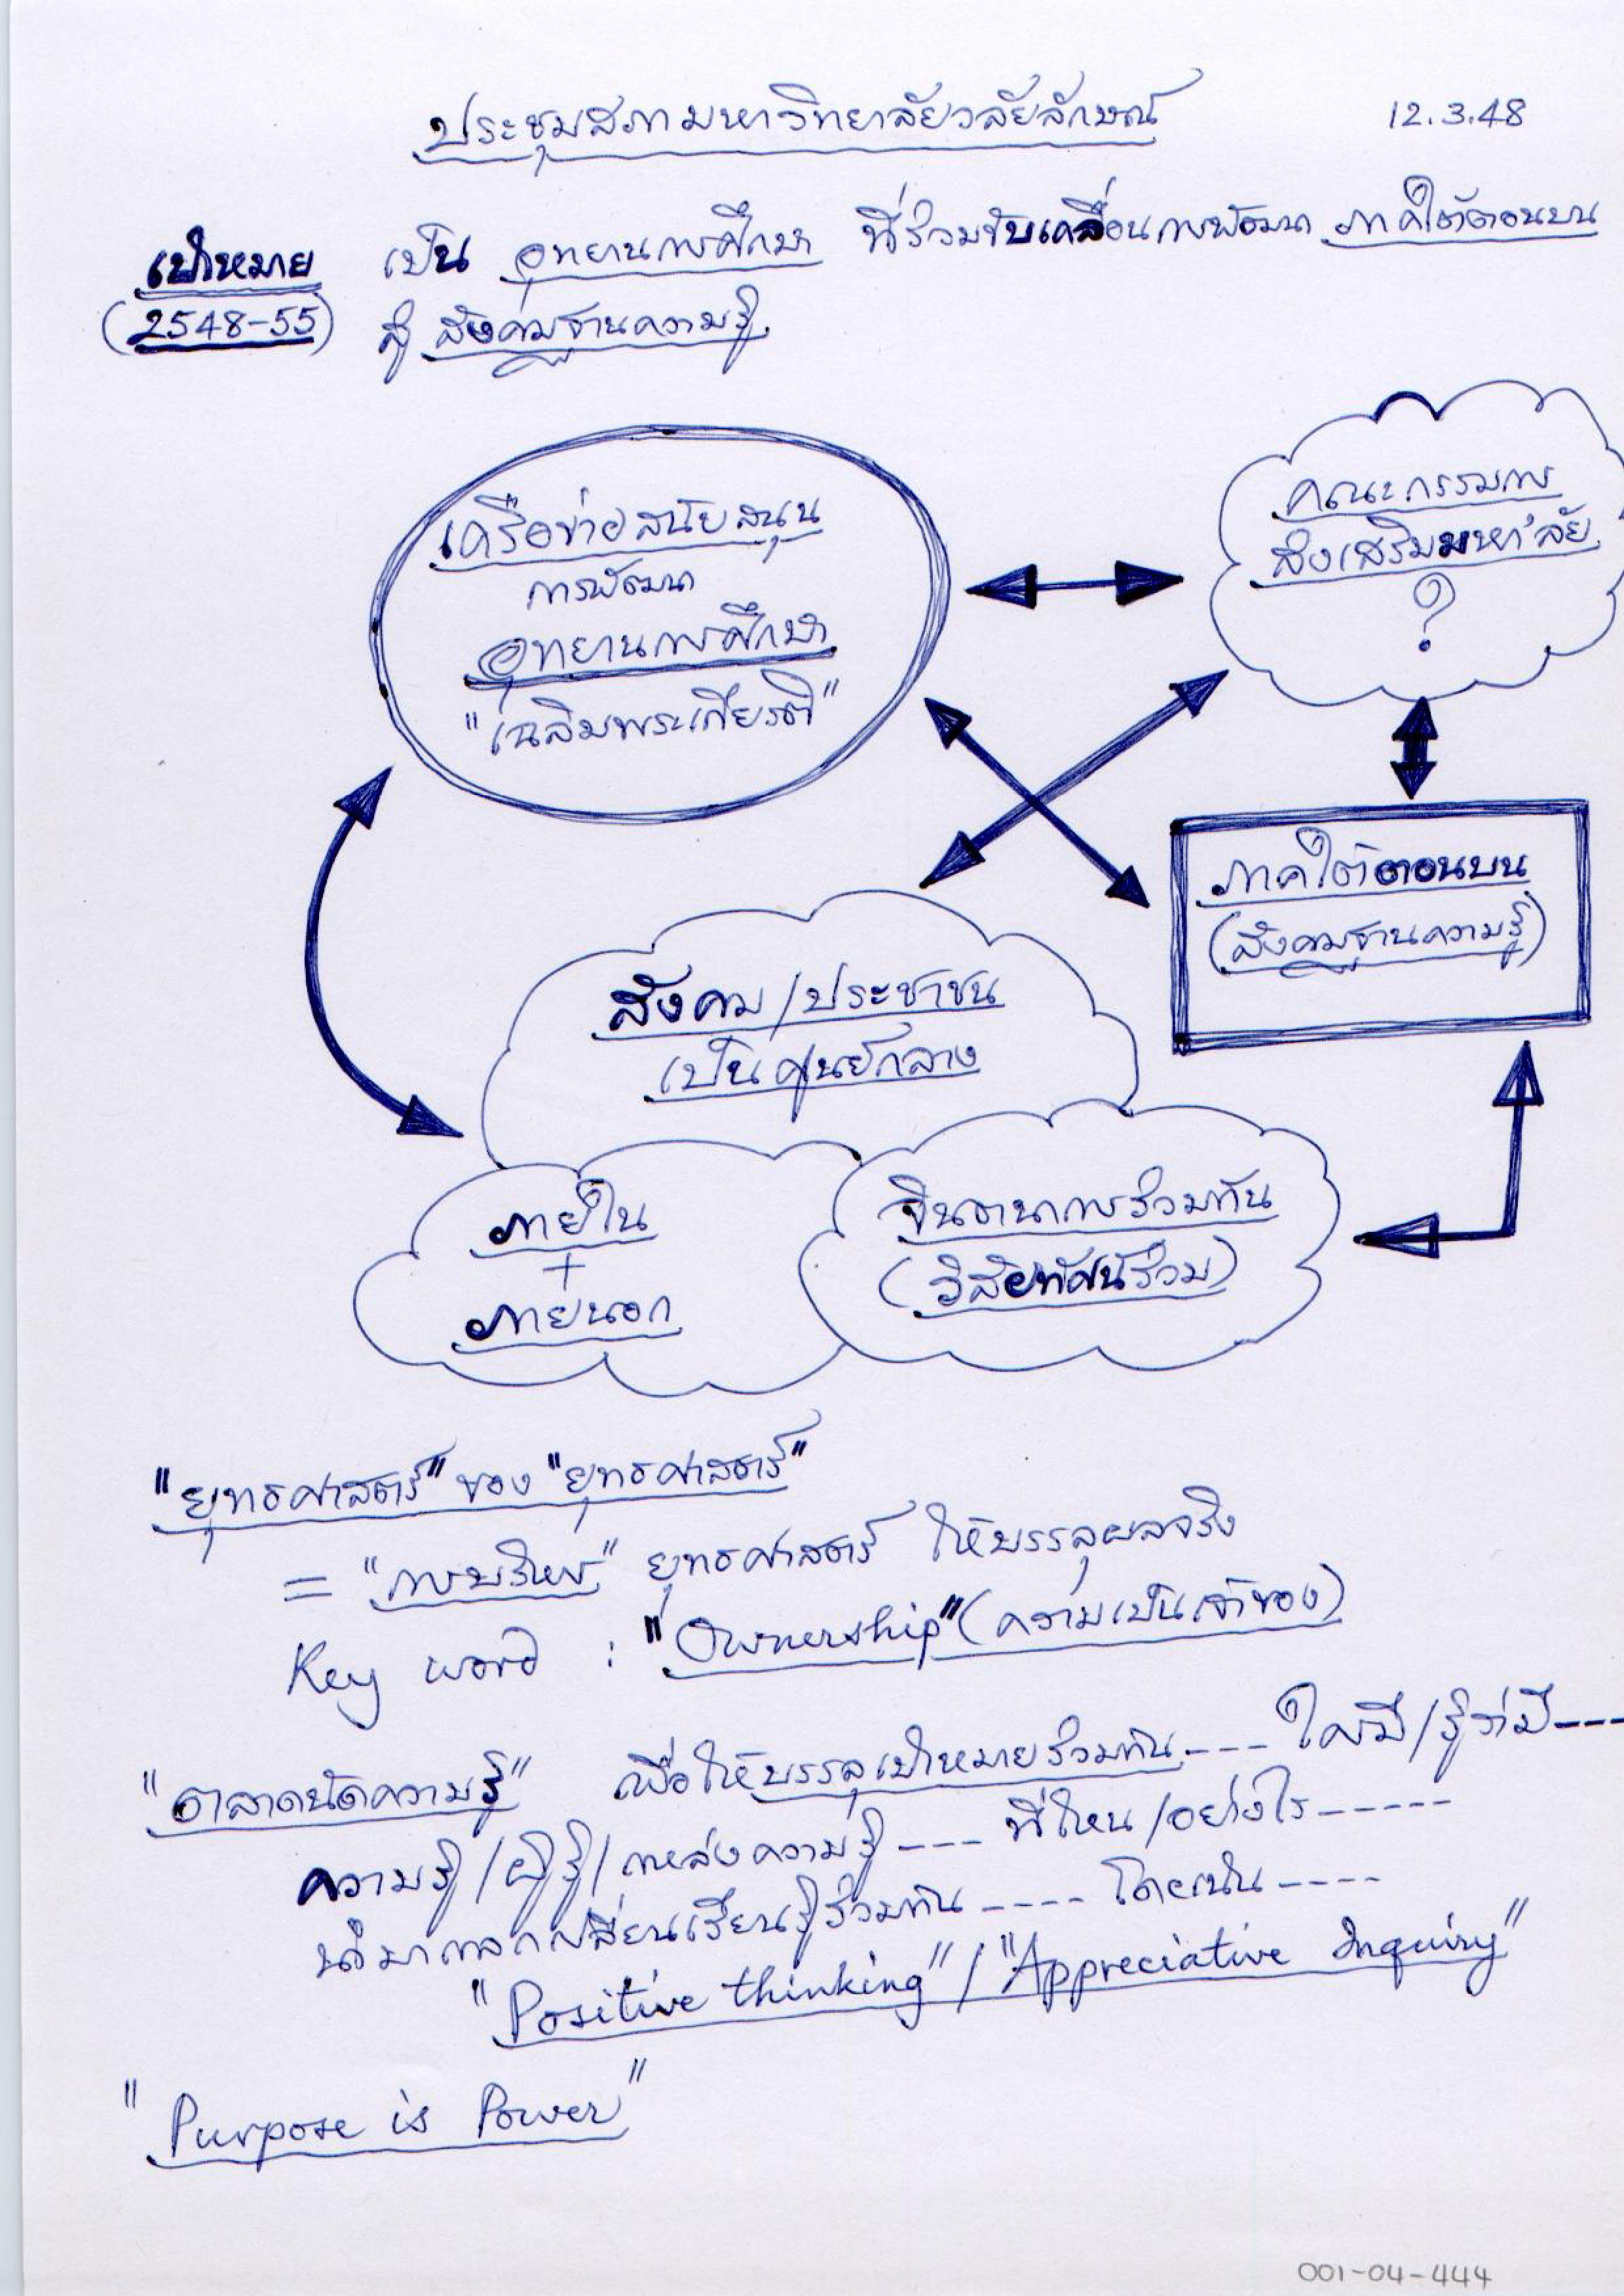 ประชุมสภามหาวิทยาลัยวลัยลักษณ์ 12.3.48
เป้าหมาย เป็น อุทยานการศึกษา ที่ร่วมขับเคลื่อนการพัฒนา ภาคใต้ตอนบน
(2548-55) สู่ สังคมฐานความรู้
เครือข่ายสนับสนุน
การพัฒนา
อุทยานการศึกษา
"เฉลิมพระเกียรติ"
คณะกรรมการ
ส่งเสริมมหา'ลัย
?
ภาคใต้ตอนบน
(สังคมฐานความรู้)
สังคม/ประชาชน
เป็นศูนย์กลาง
ภายใน
+
ภายนอก
จินตนาการร่วมกัน
(วิสัยทัศน์ร่วม)
"ยุทธศาสตร์" ของ "ยุทธศาสตร์"
= "การบริหาร" ยุทธศาสตร์ ให้บรรลุผลจริง
Key word : "Ownership" (ความเป็นเจ้าของ)
"ตลาดนัดความรู้" เพื่อให้บรรลุเป้าหมายร่วมกัน---- ใครมี/รู้ว่ามี---
ความรู้/ผู้รู้/แหล่งความรู้ ---- ที่ไหน/อย่างไร-----
นำมาแลกเปลี่ยนเรียนรู้ร่วมกัน ---- โดยเน้น ----
"Positive thinking" / "Appreciative Inquiry"
"Purpose is Power"
001-04-444